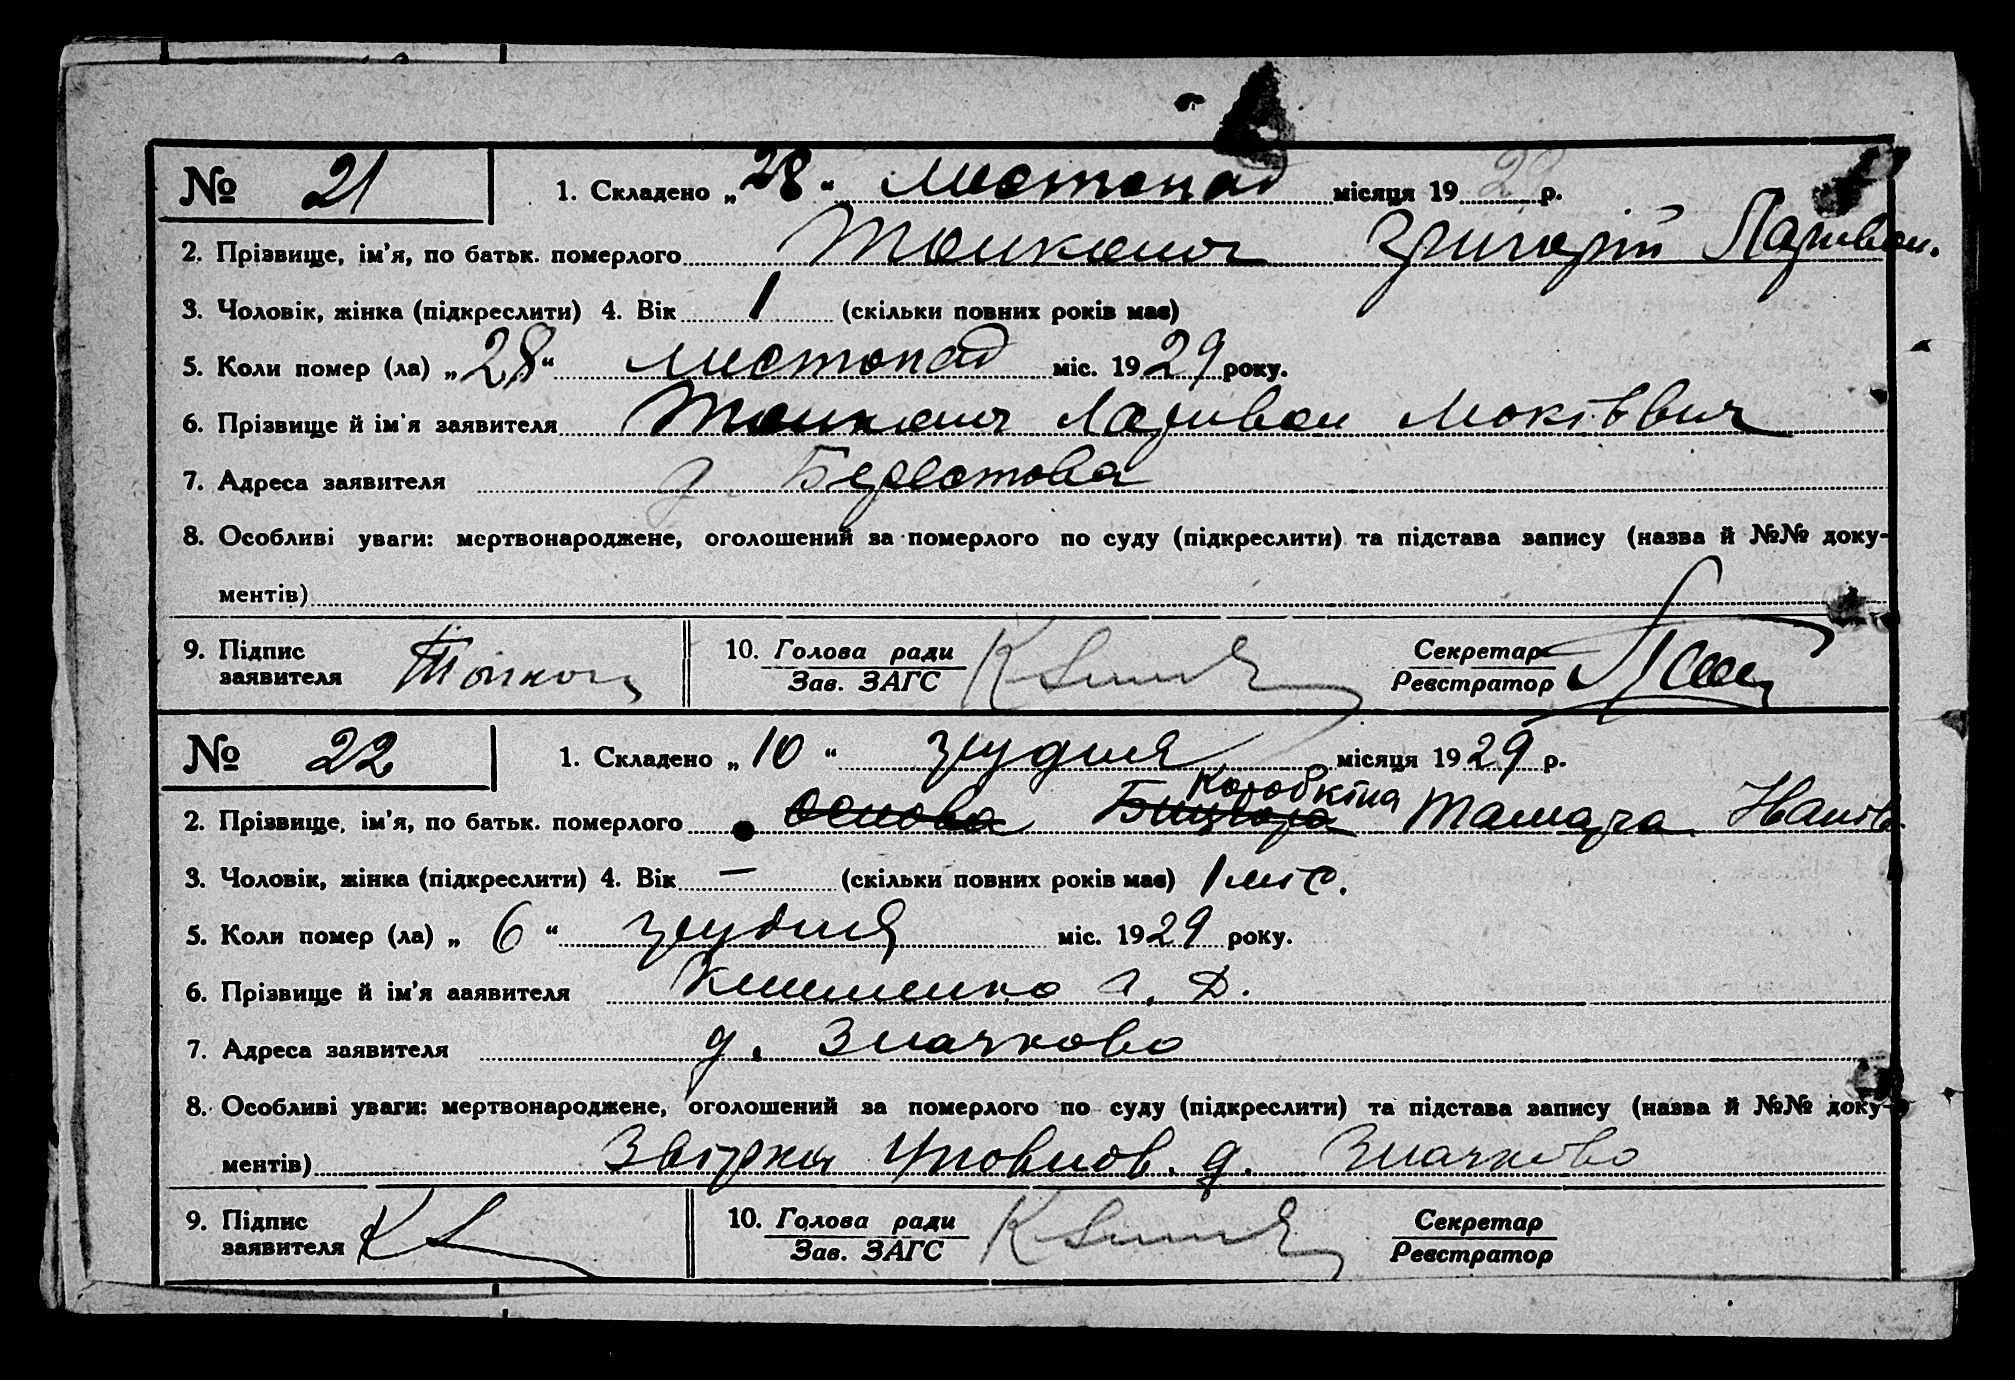 № 21 1. Складено „28“ листопад місяця 1929 р.
2. Прізвище, ім'я, по батьк. померлого Григорій
3. Чоловік, жінка (підкреслити) 4. Вік 1 (скільки повних років має)
5. Коли помер (ла) „28“ листопад міс. 1929 року.
6. Прізвище й ім'я заявителя
7. Адреса заявителя д. Берестова
8. Особливі уваги: мертвонароджене, оголошений за померлого по суду (підкреслити) та підстава запису (назва й №№ доку-
ментів)
9. Підпис 10. Голова ради Секретар
заявителя Зав. ЗАГС Реєстратор
№ 22 1. Складено „10“ грудня місяця 1929 р.
Коробкіна
2. Прізвище, ім'я, по батьк. померлого Основа Тамара
3. Чоловік, жінка (підкреслити) 4. Вік — (скільки повних років має) 1 міс.
5. Коли помер (ла) „6“ грудня міс. 1929 року.
6. Прізвище й ім'я заявителя
7. Адреса заявителя д. Значково
8. Особливі уваги: мертвонароджене, оголошений за померлого по суду (підкреслити) та підстава запису (назва й №№ доку-
ментів) д. Значково
9. Підпис 10. Голова ради Секретар
заявителя Зав. ЗАГС Реєстратор